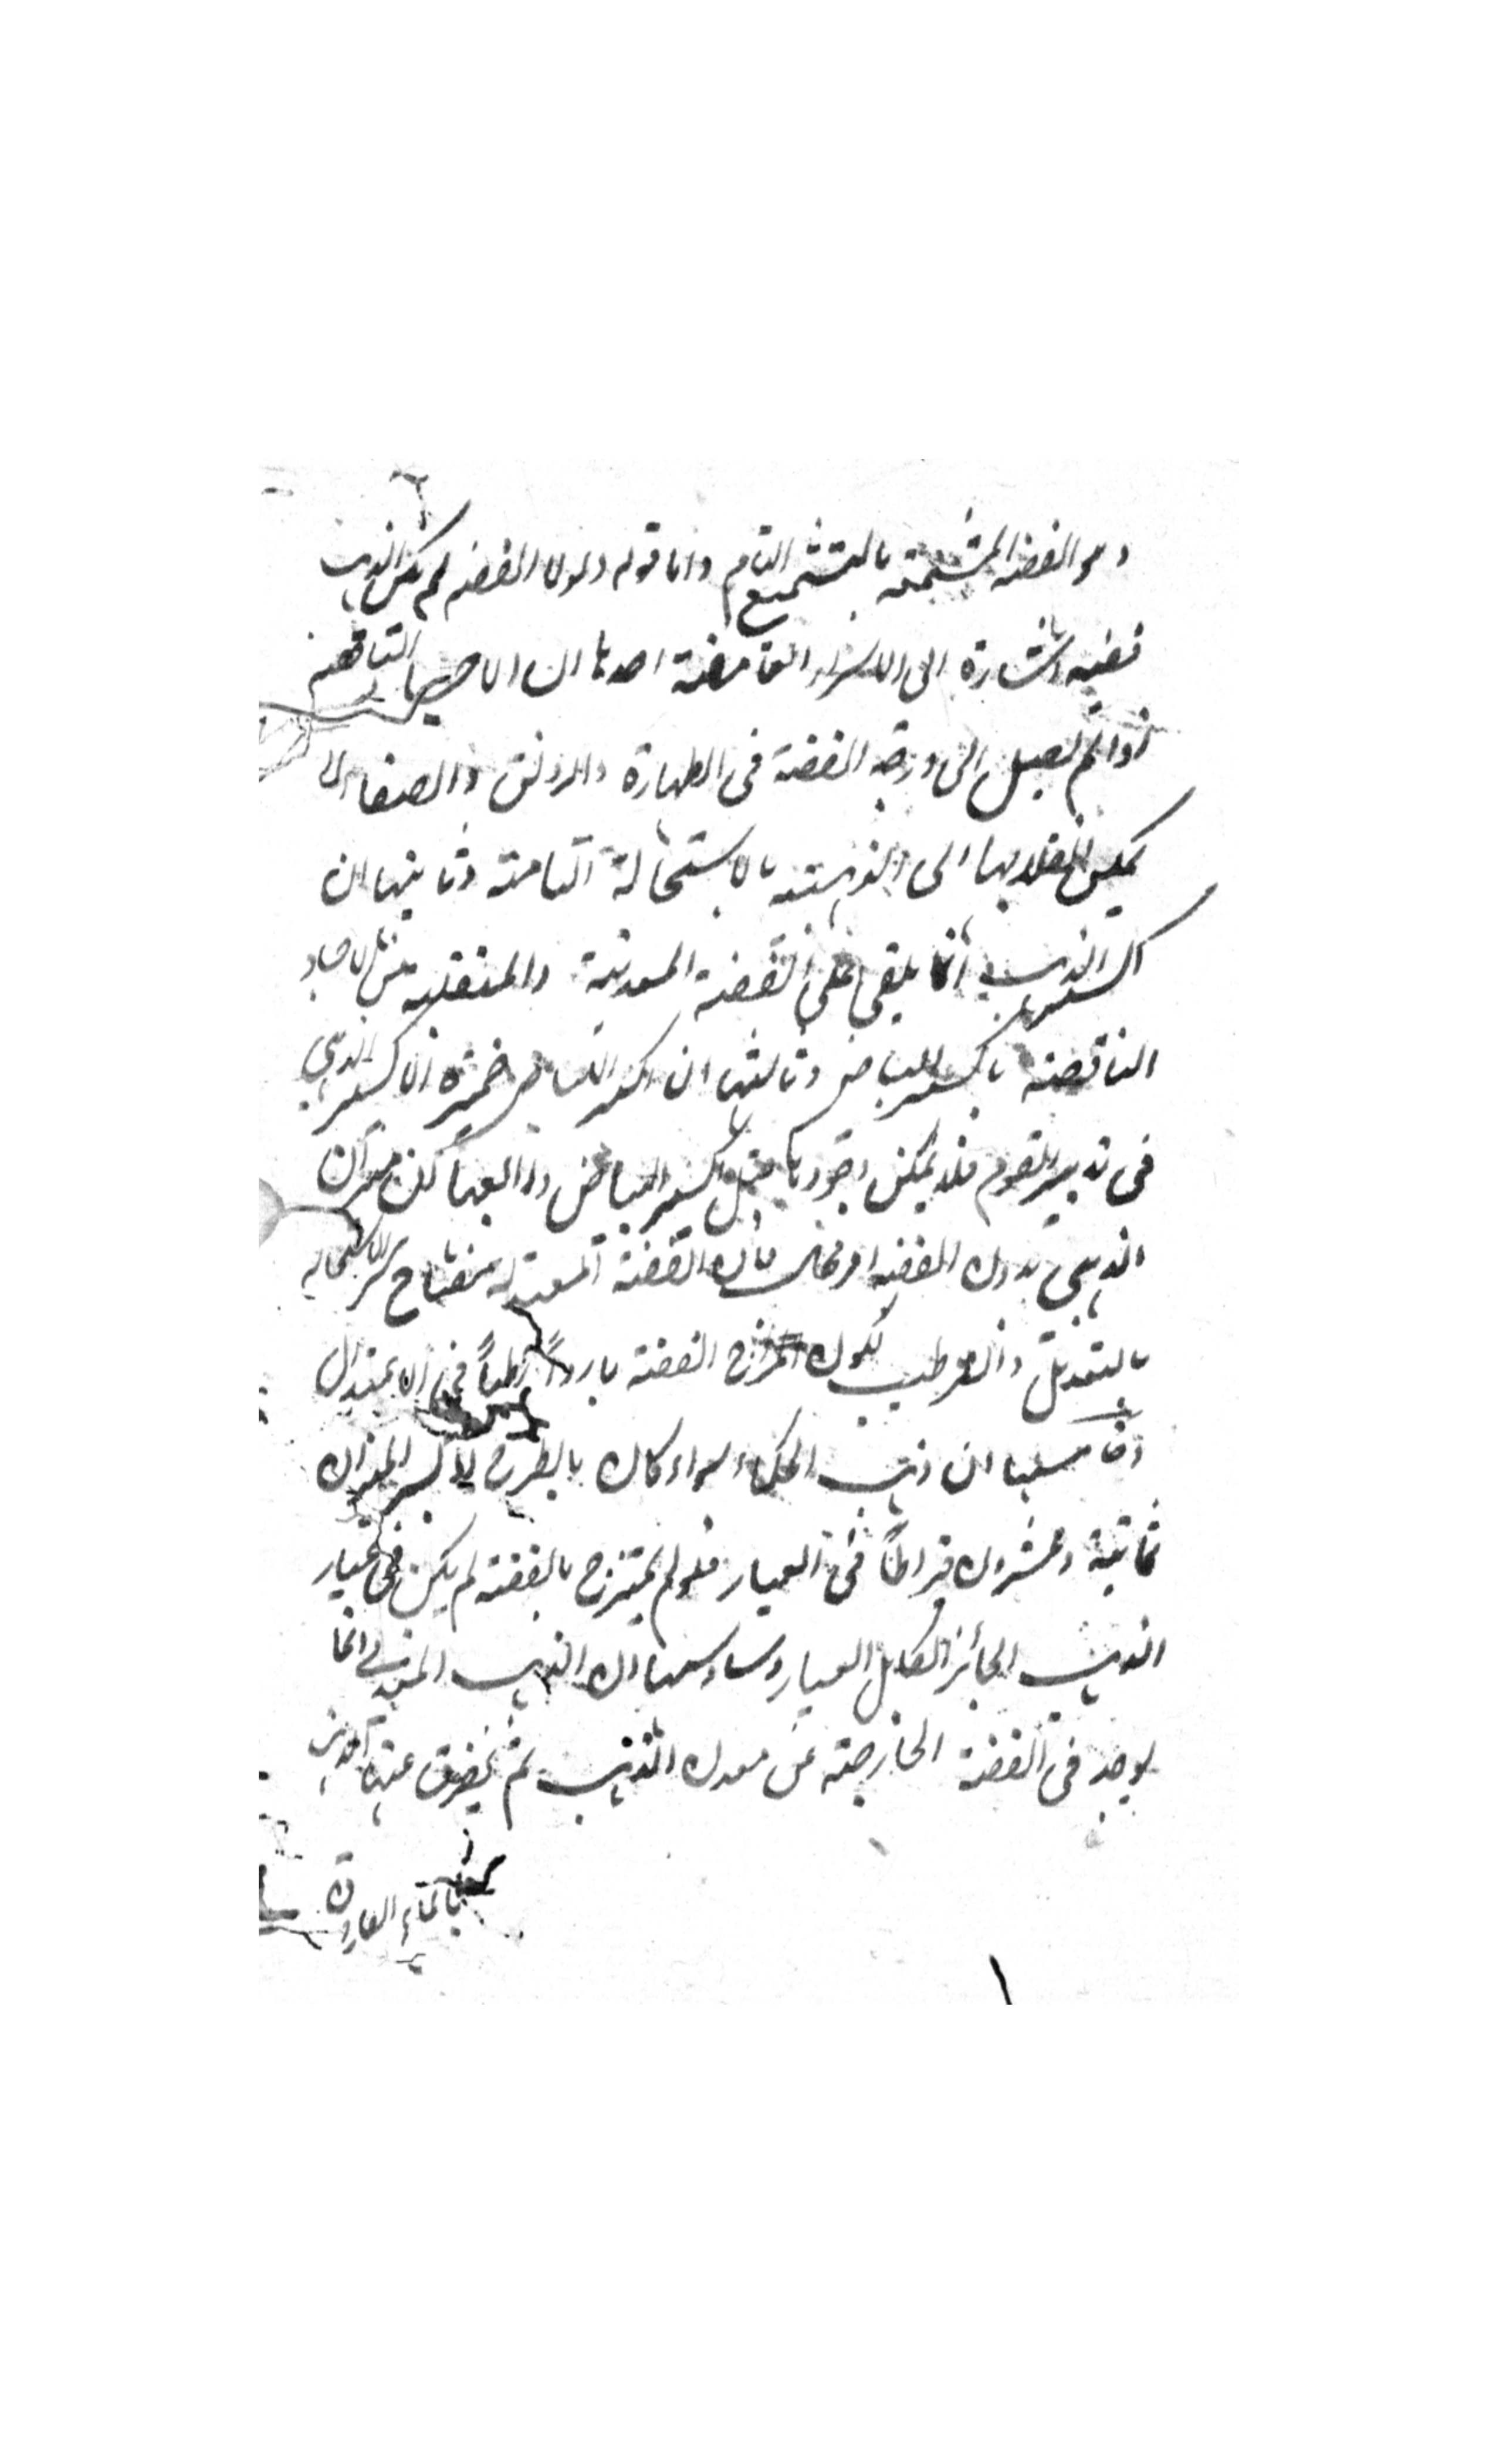 وهو الفضة المشمعة بالتشميع التام واما قوله ولولا الفضة لم يكن الذهب
ففيه اشارة الى الاسرار الغامضة احدها ان الاجساد الناقصة
اذا لم يصل الى درجة الفضة في الطهارة والرونق والصفا لا
يمكن انقلابها الى الذهبية بالاستحالة التامة وثانيها ان
اكسير الذهب انما يلقى على الفضة المعدنية والمنقلبة من الاجساد
الناقصة باكسير البياض وثالثها ان اكسير البياض خميرة الاكسير الذهبي
في تدبير القوم فلا يمكن وجوده قبل اكسير البياض ورابعها كان ميزان
الذهبي بدون الفضة امر محال فان الفضة المعتدلة مفتاح سر الاستحالة
بالتعديل والترطيب لكون مزاج الفضة باردا رطبا في الاعتدال
وخامسها ان ذهب الحكماء سواء كان بالطرح الاكسير الميزان
ثمانية وعشرون قيراطا في العيار فلو لم يمتزج بالفضة لم يكن في عيار
الذهب الجائز الكامل العيار وسادسها ان الذهب المعدني انما
يوجد في الفضة الخارجة عن معدن الذهب ثم يفرق عنها الذهب
بالماء الفاروق